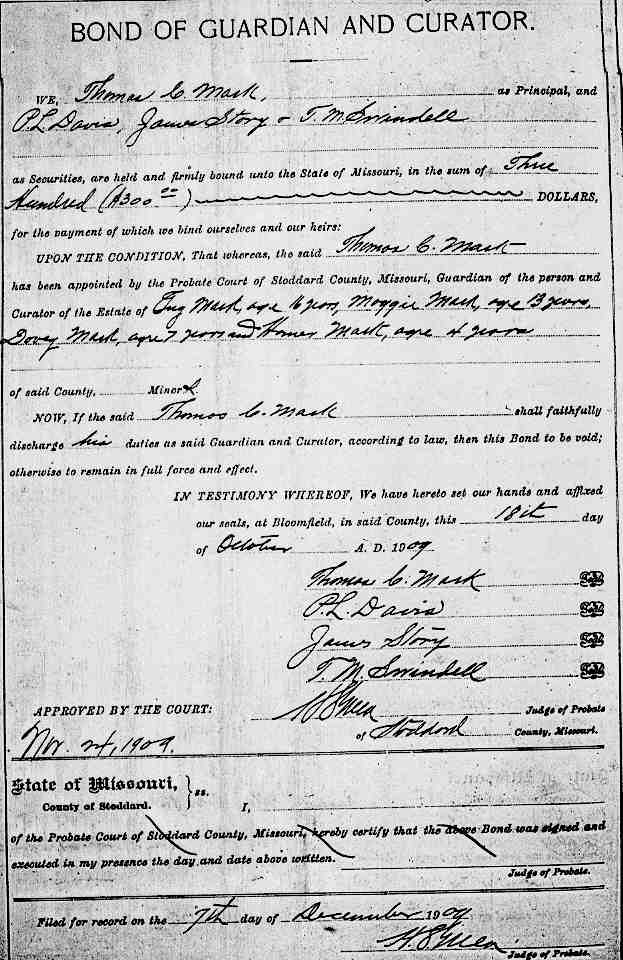 BOND OF GUARDIAN AND CURATOR.
WE, Thomas C. Mask, as Principal, and
P.L. Davis, James Story & T. M. Swindell
as Securities, are held and firmly bound unto the State of Missouri, in the sum of Three
Hundred ($300 00) DOLLARS,
for the payment of which we bind ourselves and our heirs:
UPON THE CONDITION, That whereas, the said Thomas C. Mask
has been appointed by the Probate Court of Stoddard County, Missouri, Guardian of the person and
Curator of the Estate of Mask, age 16 years, Maggie Mask, age 13 years,
Dovey Mask, age 7 years and Homer Mask, age 4 years
of said County, Minors.
NOW, If the said Thomas C. Mask shall faithfully
discharge his duties as said Guardian and Curator, according to law, then this Bond to be void;
otherwise to remain in full force and effect.
IN TESTIMONY WHEREOF, We have hereto set our hands and affixed
our seals, at Bloomfield, in said County, this 18th day
of October A. D. 1909
Thomas C. Mask Seal
P.L. Davis Seal
James Story Seal
T. M. Swindell Seal
APPROVED BY THE COURT: Judge of Probate
of Stoddard County, Missouri.
Nov. 24, 1909.
State of Missouri, ss.
County of Stoddard. I,
of the Probate Court of Stoddard County, Missouri, hereby certify that the above Bond was signed and
executed in my presence the day and date above written.
Judge of Probate.
Filed for record on the 7th day of December 1909
Judge of Probate.